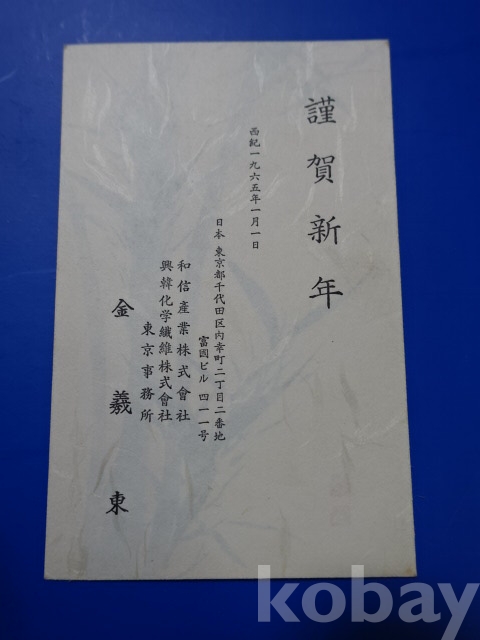 謹賀新年
西紀一九六五年一月一日
日本 東京都千代田区内幸町二丁目二番地
富國ビル 四一一号
和信產業株式會社
興韓化学纖維株式會社
東京事務所
金羲東
kobay